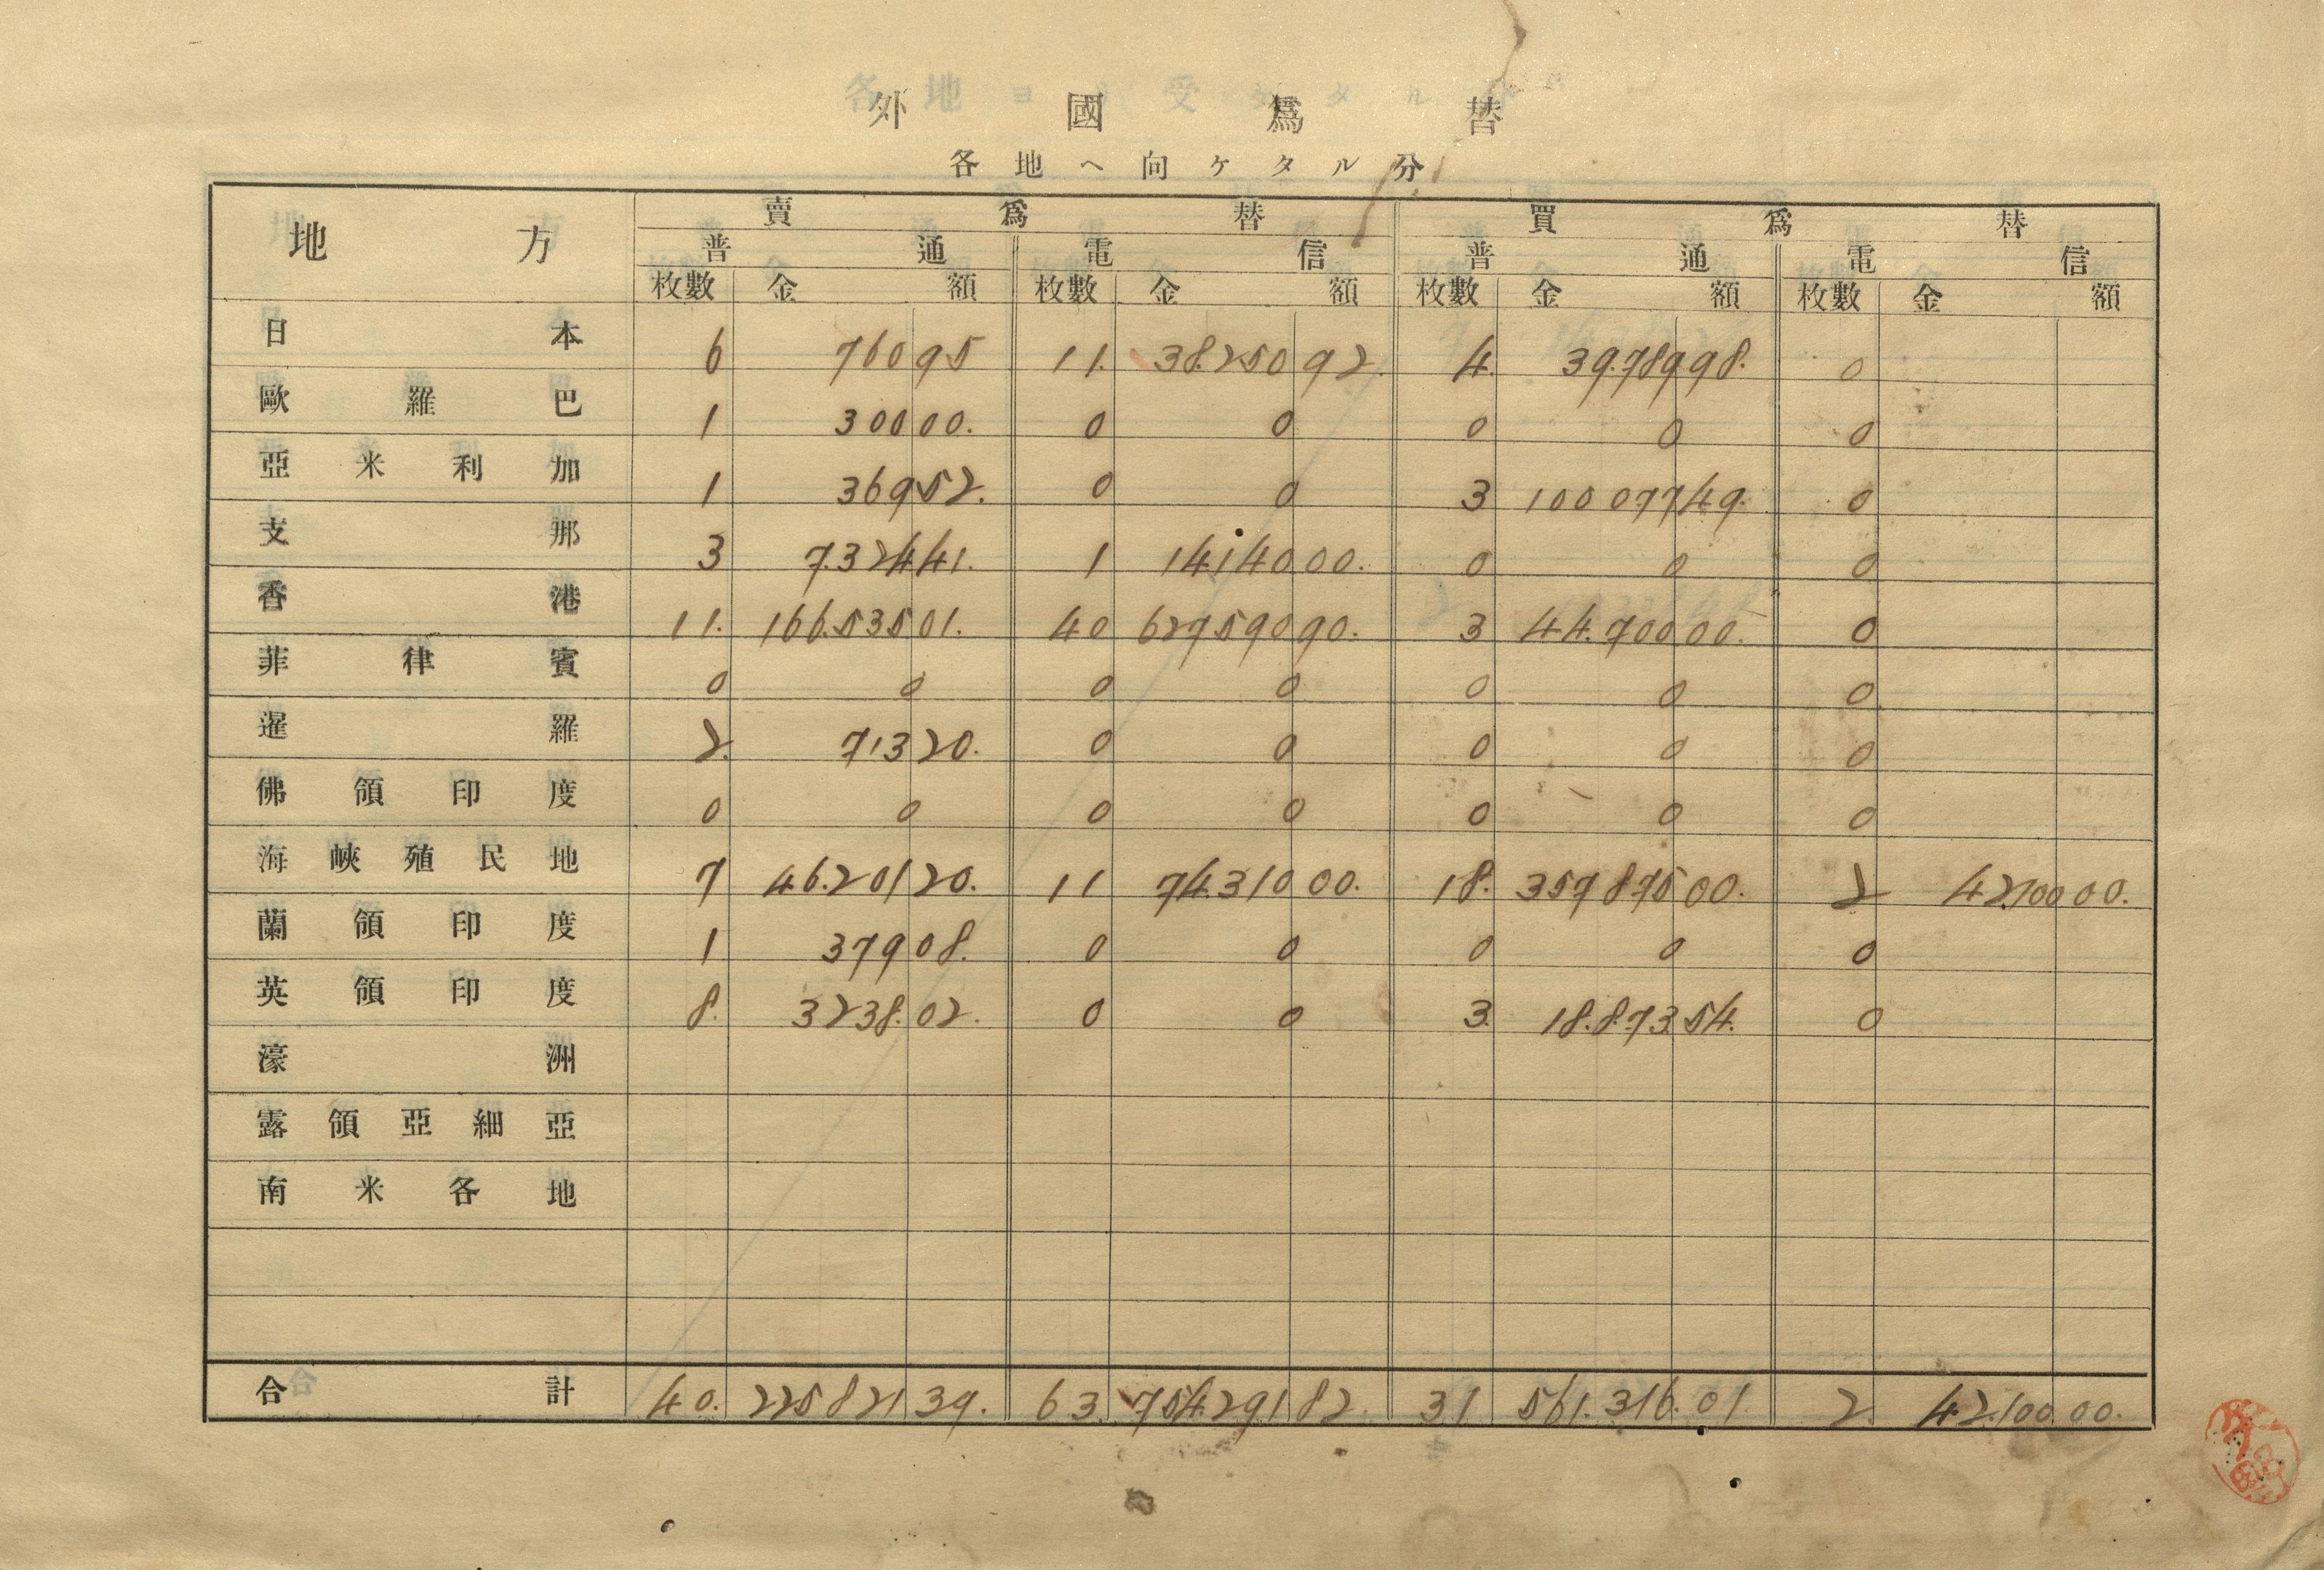 外國爲替
各地ヘ向ケタル分
地方 賣爲替 買爲替
普通 電信 普通 電信
枚數 金額 枚數 金額 枚數 金額 枚數 金額
日本 6 760 95 11. 38.250 92. 4. 39.789 98. 0
歐羅巴 1 300 00. 0 0 0 0 0
亞米利加 1 369 52. 0 0 3 100 077 49. 0
支那 3 7.324 41. 1 14140 00. 0 0 0
香港 11. 166.535 01. 40 627590 90. 3 44.700 00. 0
菲律賓 0 0 0 0 0 0 0
暹羅 2. 713 20. 0 0 0 0 0
佛領印度 0 0 0 0 0 0 0
海峽殖民地 7 46.201 20. 11 74.310 00. 18. 357875 00. 2 42.100 00.
蘭領印度 1 379 08. 0 0 0 0 0
英領印度 8. 3238. 02. 0 0 3. 18.873 54. 0
濠洲
露領亞細亞
南米各地
合計 40. 225821 39. 63. 754.291 82. 31 561.316. 01. 2. 42.100 00.